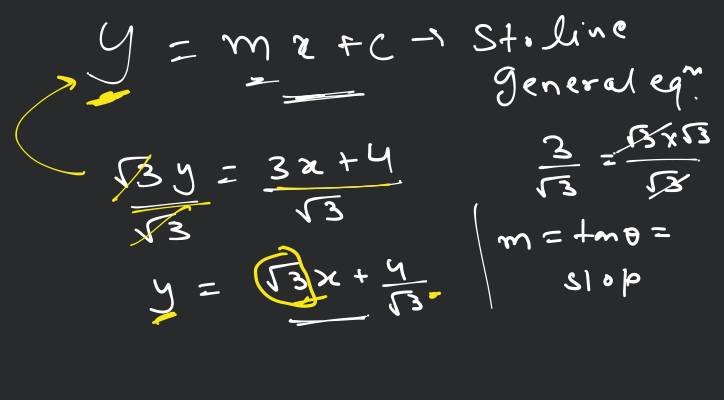 y = mx + c → St. line
general eqⁿ.
√3 y / √3 = 3x + 4 / √3
3 / √3 = √3 x √3 / √3
y = √3 x + 4 / √3
m = tanθ =
slop